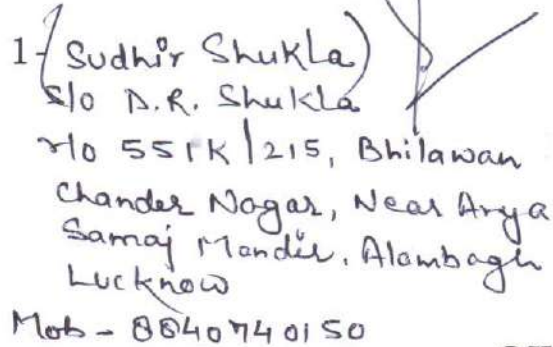 1- (Sudhir Shukla)
S/o D.R. Shukla
r/o 551K/215, Bhilawan
Chander Nagar, Near Arya
Samaj Mandir, Alambagh
Lucknow
Mob - 8840740150